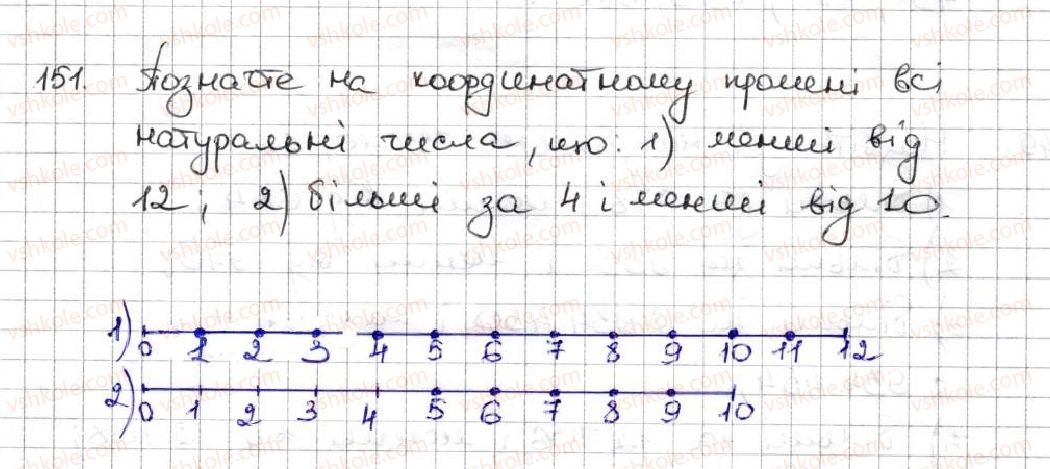 151. Позначте на координатному промені всі
натуральні числа, що: 1) менші від
12; 2) більші за 4 і менші від 10.
1) 0 1 2 3 4 5 6 7 8 9 10 11 12
2) 0 1 2 3 4 5 6 7 8 9 10